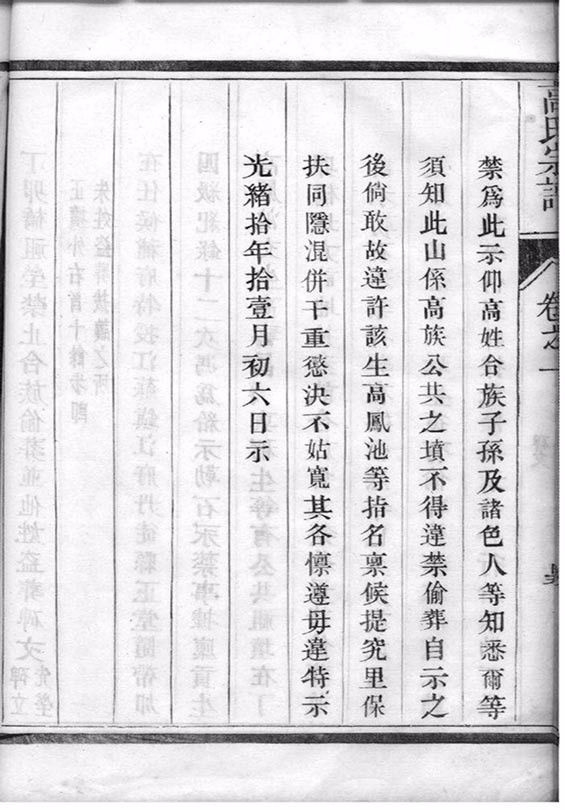 高氏宗譜
卷之一
禁爲此示仰高姓合族子孫及諸色人等知悉爾等
須知此山係高族公共之墳不得違禁偷葬自示之
後倘敢故違許該生高鳳池等指名稟候提究里保
扶同隱混併干重懲決不姑寬其各懍遵毋違特示
光緒拾年拾壹月初六日示